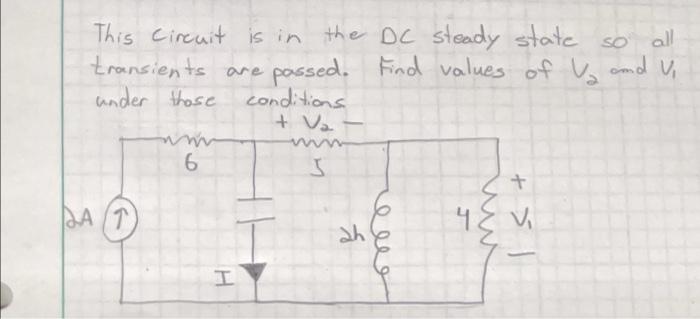 This circuit is in the DC steady state so all
transients are passed. Find values of V2 and V1
under those conditions
+ V2 -
6
5
2A
2h
4
+
V1
-
I